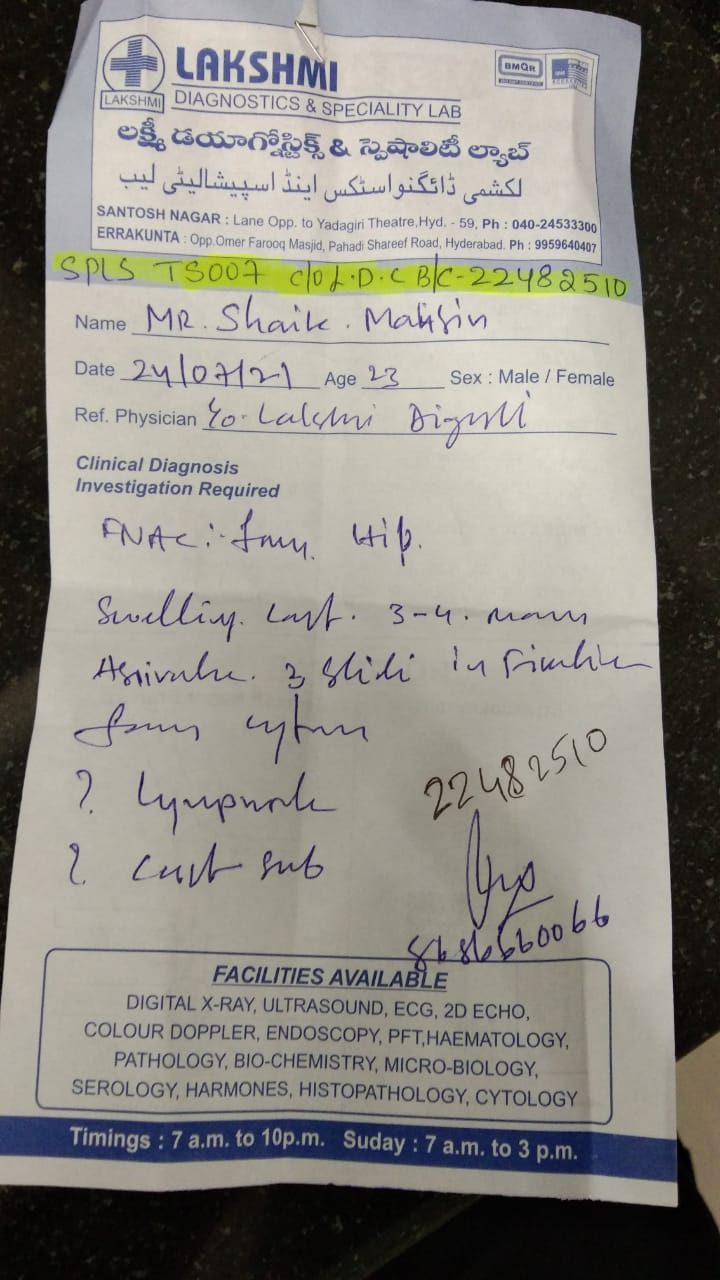 LAKSHMI
LAKSHMI
DIAGNOSTICS & SPECIALITY LAB
BMQR
లక్ష్మీ డయాగ్నోస్టిక్స్ & స్పెషాలిటీ ల్యాబ్
لکشمی ڈائگنواسٹکس اینڈ اسپیشالیٹی لیب
SANTOSH NAGAR : Lane Opp. to Yadagiri Theatre,Hyd. - 59, Ph : 040-24533300
ERRAKUNTA : Opp.Omer Farooq Masjid, Pahadi Shareef Road, Hyderabad. Ph : 9959640407
SPLS TS007 C/O L.D.C B/C-22482510
Name MR. Shaik
Date 24/07/21 Age 23 Sex : Male / Female
Ref. Physician
Clinical Diagnosis
Investigation Required
FNAC :- Hip.
Swelling. 3-4.
3 slide in
? 
22482510
?
FACILITIES AVAILABLE
DIGITAL X-RAY, ULTRASOUND, ECG, 2D ECHO,
COLOUR DOPPLER, ENDOSCOPY, PFT,HAEMATOLOGY,
PATHOLOGY, BIO-CHEMISTRY, MICRO-BIOLOGY,
SEROLOGY, HARMONES, HISTOPATHOLOGY, CYTOLOGY
Timings : 7 a.m. to 10p.m. Suday : 7 a.m. to 3 p.m.